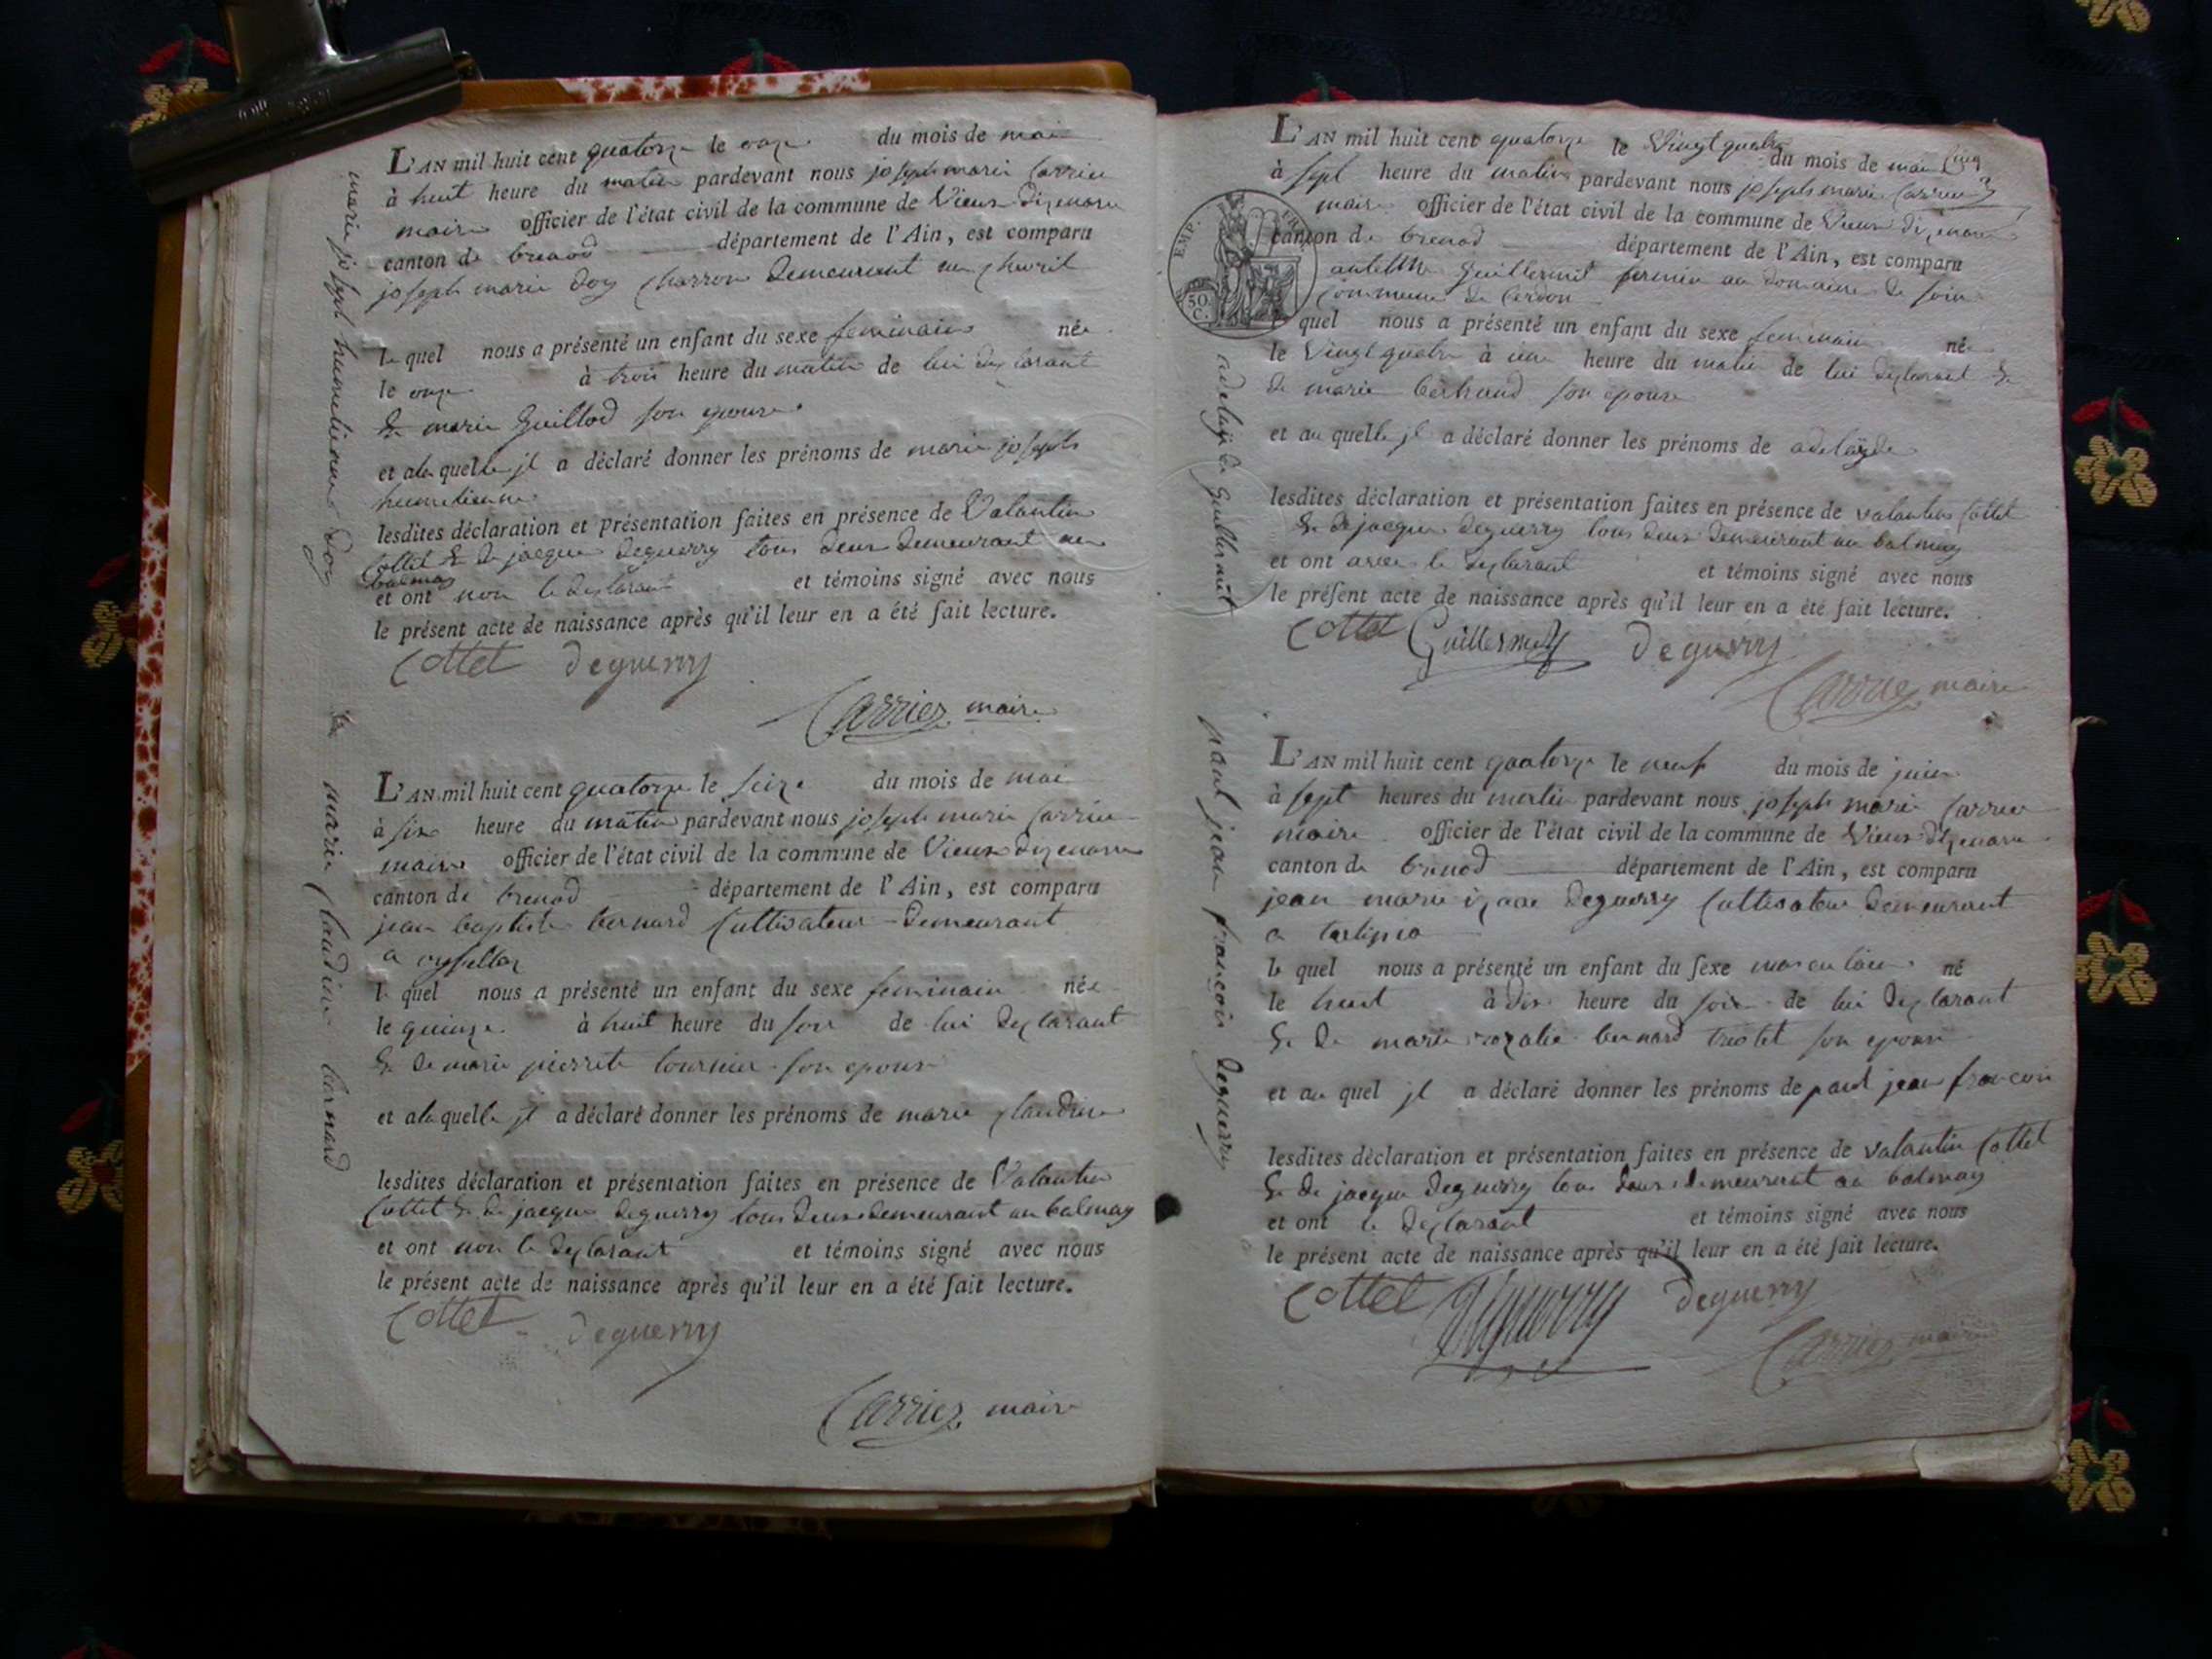 marie joseph humelienne Doy
L'AN mil huit cent quatorze le onze du mois de mai
à huit heure du matin pardevant nous joseph marie Carrier
maire officier de l'état civil de la commune de Vieux Dizenave
canton de brenod département de l'Ain, est comparu
joseph marie Doy Charron Demeurant au
le quel nous a présenté un enfant du sexe feminain née
le onze à trois heure du matin de lui declarant
& marie Guillod son epouse
et ala quelle jl a déclaré donner les prénoms de marie joseph
humelienne
lesdites déclaration et présentation faites en présence de Valantin
Cottet & de jacque Deguerry tous deux Demeurant au
balmay
et ont non le declarant et témoins signé avec nous
le présent acte de naissance après qu'il leur en a été fait lecture.
Cottet Deguerry
Carrier maire
marie Claudine bernard
L'AN mil huit cent quatorze le seize du mois de mai
à six heure du matin pardevant nous joseph marie Carrier
maire officier de l'état civil de la commune de Vieux Dizenave
canton de brenod département de l'Ain, est comparu
jean baptiste bernard Cultivateur Demeurant
a
le quel nous a présenté un enfant du sexe feminain née
le quinze à huit heure du soir de lui declarant
& de marie pierrete tournier son epouse
et ala quelle jl a déclaré donner les prénoms de marie Claudine
lesdites déclaration et présentation faites en présence de Valantin
Cottet & de jacque deguerry tous deux demeurant au balmay
et ont non le declarant et témoins signé avec nous
le présent acte de naissance après qu'il leur en a été fait lecture.
Cottet deguerry
Carrier maire
EMP. FR.
50 C.
adelayde Guillermit
L'AN mil huit cent quatorze le Vingt quatre du mois de mai
à sept heure du matin pardevant nous joseph marie Carrier
maire officier de l'état civil de la commune de Vieux dizenave
canton de brenod département de l'Ain, est comparu
antelme Guillermit fermier au domaine de
Commune de Cerdon
le quel nous a présenté un enfant du sexe feminain née
le Vingt quatre à une heure du matin de lui declarant &
de marie bertrand son epouse
et au quelle jl a déclaré donner les prénoms de adelayde
lesdites déclaration et présentation faites en présence de valantin Cottet
& de jacque deguerry tous deux Demeurant au balmay
et ont avec le declarant et témoins signé avec nous
le présent acte de naissance après qu'il leur en a été fait lecture.
Cottet Guillermet Deguerry
Carrier maire
paul jean francois deguerry
L'AN mil huit cent quatorze le neuf du mois de juin
à sept heures du matin pardevant nous joseph marie Carrier
maire officier de l'état civil de la commune de Vieux dizenave
canton de brenod département de l'Ain, est comparu
jean marie izaac Deguerry Cultivateur Demeurant
a
le quel nous a présenté un enfant du sexe masculin né
le huit à dix heure du soir de lui declarant
& de marie rozalie bernard son epouse
et au quel jl a déclaré donner les prénoms de paul jean francois
lesdites déclaration et présentation faites en présence de valantin Cottet
& de jacque Deguerry tous deux demeurant au balmay
et ont le declarant et témoins signé avec nous
le présent acte de naissance après qu'il leur en a été fait lecture.
Cottet Deguerry deguerry
Carrier maire